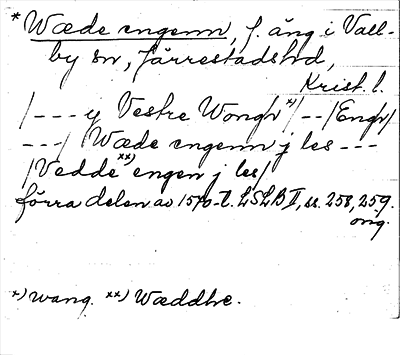 * Wæde engenn, f. äng i Vall-
by sn, Järrestads hd,
Krist. l.
/--- y Vestre Wongh *)/--/Engh/
---/ Wæde engenn j les ---
/Vedde **) engen j les/
förra delen av 1570-t. LSLB II, ss. 258, 259.
orig.
*) wang. **) Wæddhe.